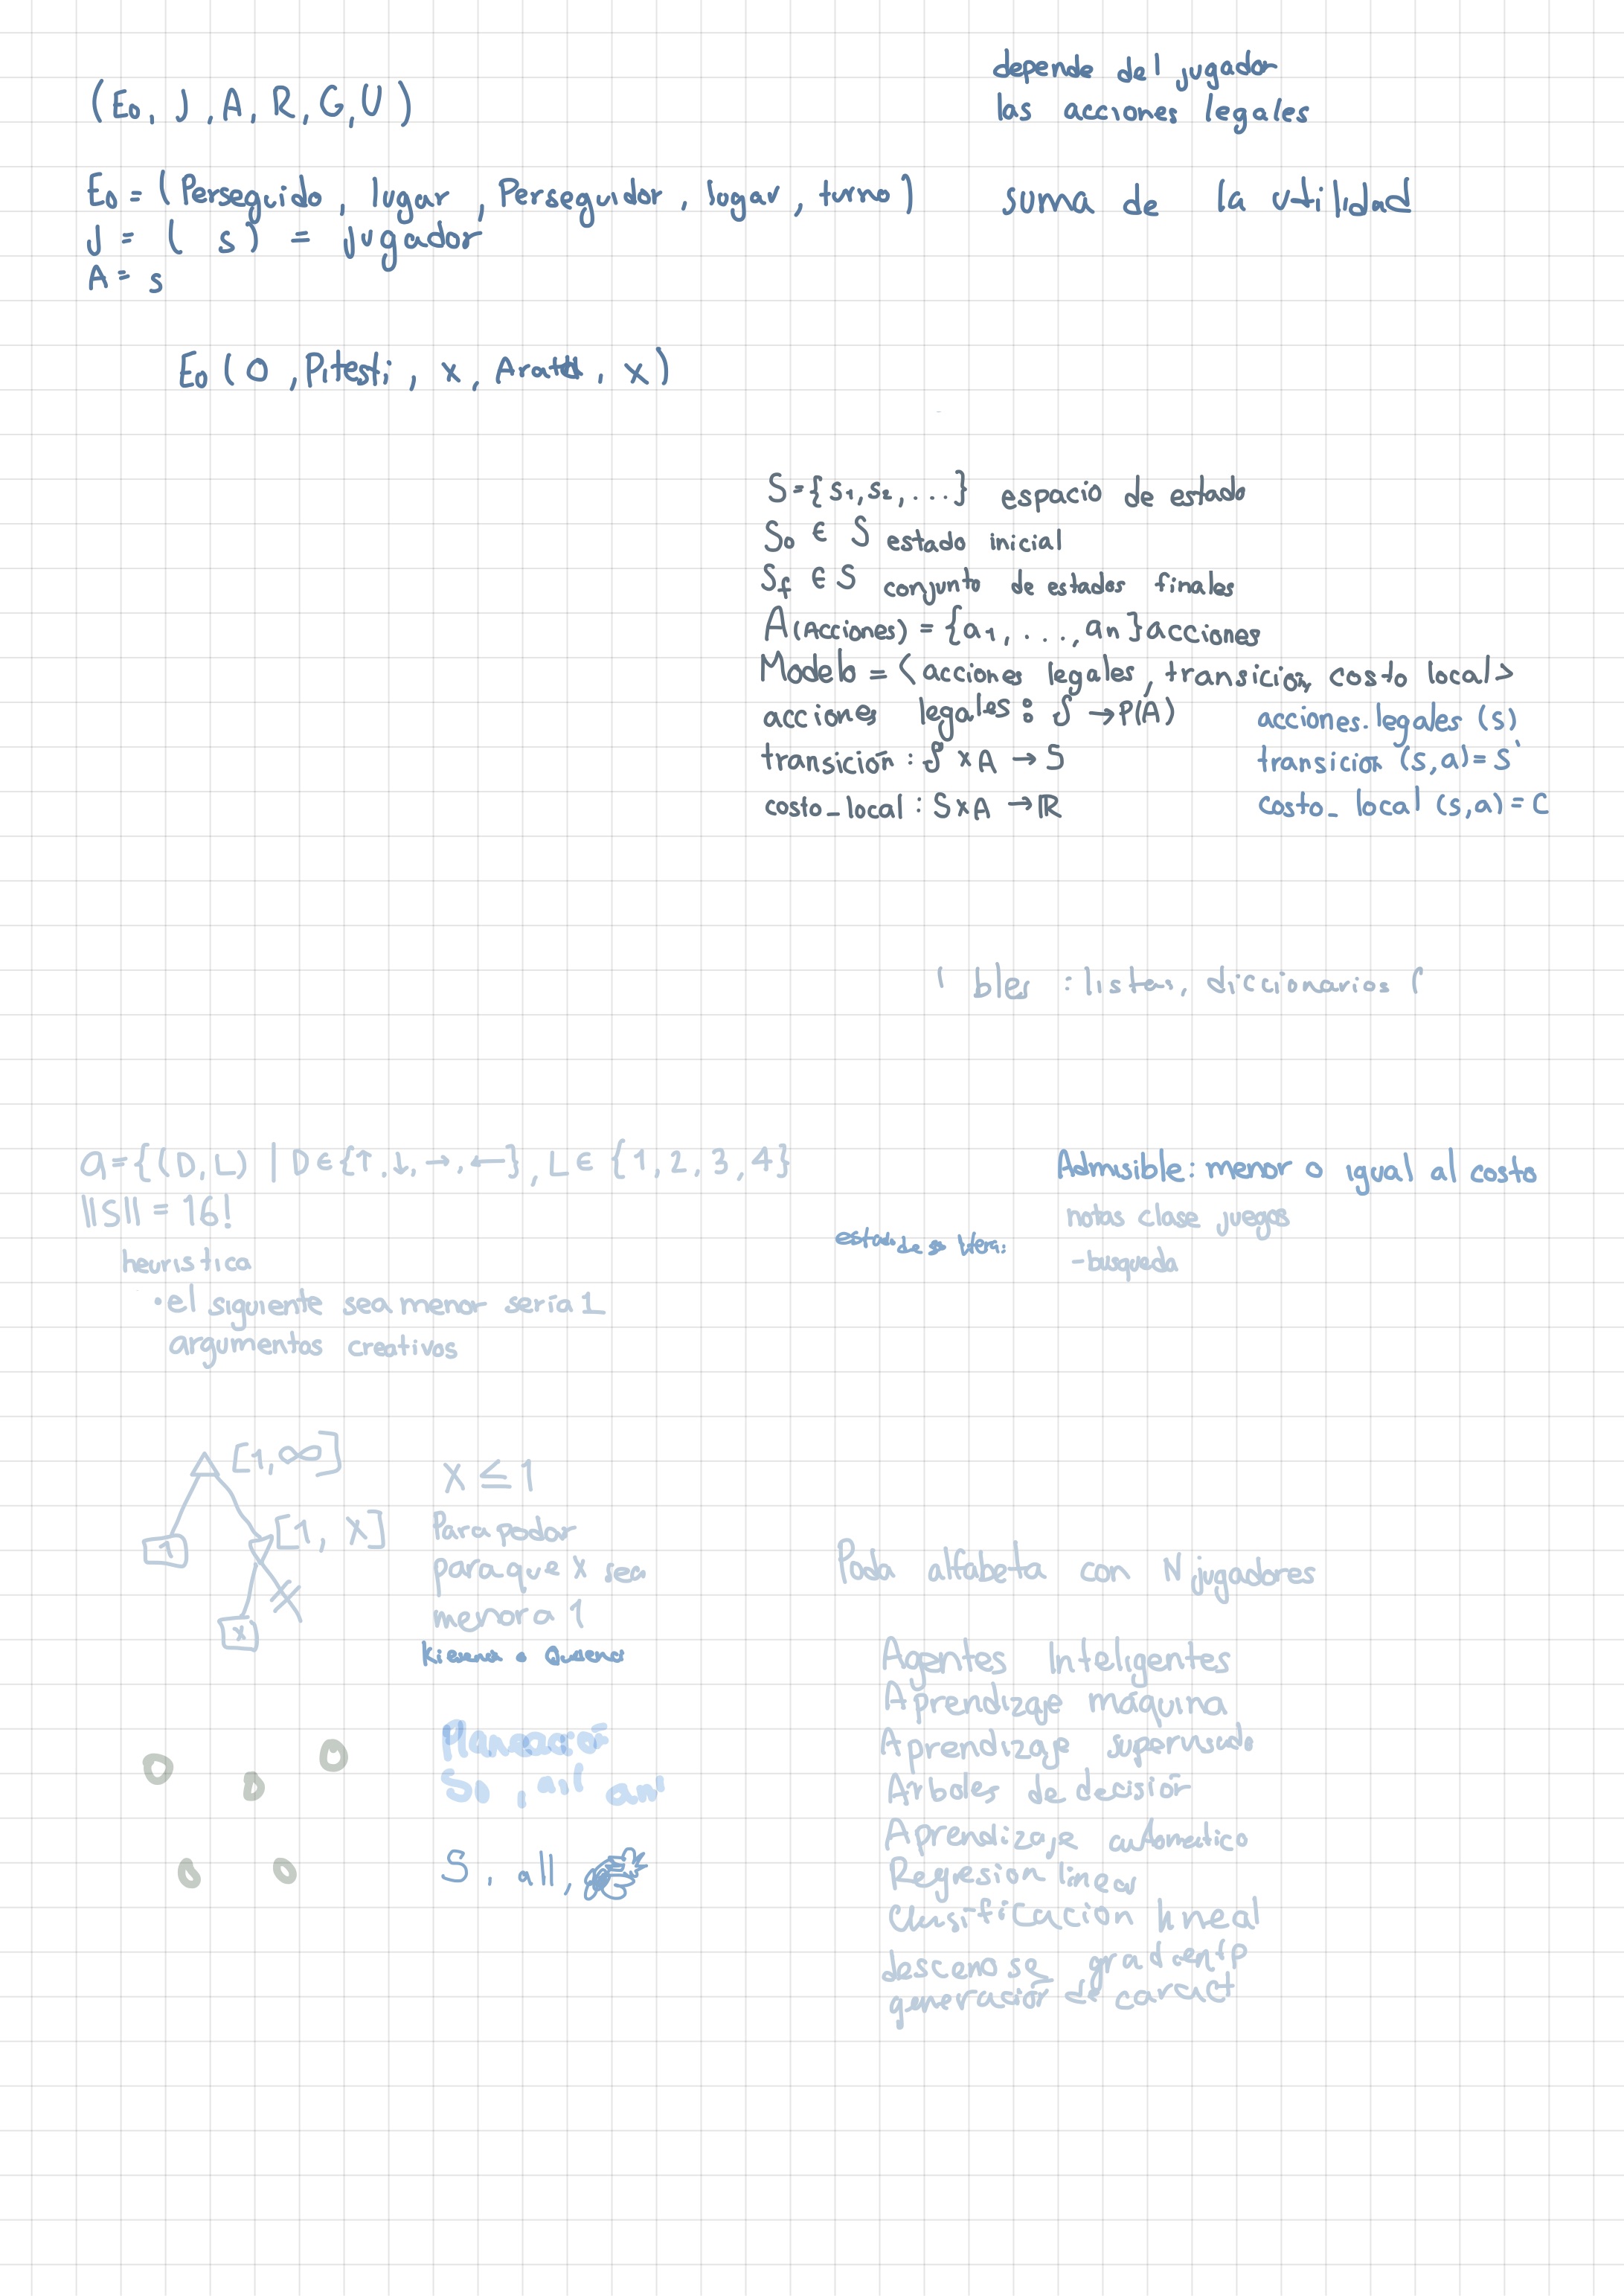 (E₀, J, A, R, G, U)
depende del jugador
las acciones legales
E₀ = (Perseguido, lugar, Perseguidor, lugar, turno)
suma de la utilidad
J = ( s) = jugador
A = s
E₀ (O, Pitesti, x, Arad, x)
S = {s₁, s₂, ...} espacio de estado
S₀ ∈ S estado inicial
S_f ∈ S conjunto de estados finales
A (Acciones) = {a₁, ..., an} acciones
Modelo = < acciones legales, transición, costo local >
acciones legales : S → P(A)
acciones.legales (s)
transición : S x A → S
transición (s,a) = S'
costo_local : S x A → ℝ
costo_local (s,a) = C
bles : listas, diccionarios (
a = {(D, L) | D ∈ {↑, ↓, →, ←}, L ∈ {1, 2, 3, 4}
||S|| = 16!
heuristica
• el siguiente sea menor sería 1
argumentos creativos
Admisible: menor o igual al costo
notas clase juegos
- busqueda
[1, ∞]
1
[1, X]
x
X ≤ 1
Para podar
para que X sea
menor a 1
Planeación
S, all,
Poda alfabeta con N jugadores
Agentes Inteligentes
Aprendizaje máquina
Aprendizaje supervisado
Arboles de decisión
Aprendizaje automatico
Regresion linear
Clasificacion lineal
gradiente
generación de caract